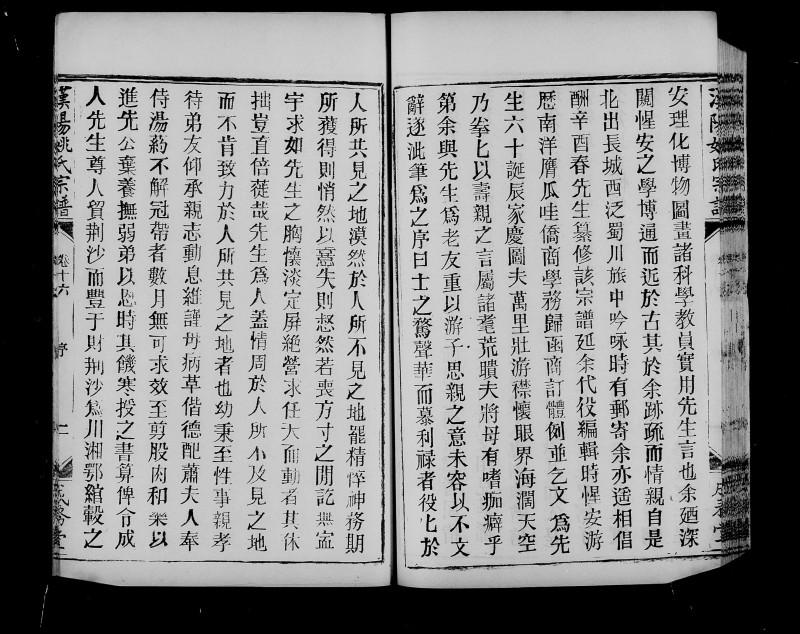 安理化博物圖畫諸科學教員實用先生言也余廼深
關惺安之學博通而近於古其於余跡疏而情親自是
北出長城西泛蜀川旅中吟咏時有郵寄余亦迭相倡
酬辛酉春先生纂修該宗譜延余代役編輯時惺安游
歷南洋膺瓜哇僑商學務歸函商訂體例並乞文為先
生六十誕辰家慶圖夫萬里壯游襟懷眼界海濶天空
乃拳匕以壽親之言屬諸耄荒聵夫將毋有嗜痂癖乎
第余與先生為老友重以游子思親之意未容以不文
辭遂泚筆為之序曰士之騖聲華而慕利祿者役匕於
人所共見之地漠然於人所不見之地罷精悴神務期
所獲得則悄然以憙失則惄然若喪方寸之閒訖無寍
宇求如先生之胸懷淡定屏絶營求任天而動者其休
拙豈直倍蓰哉先生為人蓋情周於人所不及見之地
而不肯致力於人所共見之地者也幼秉至性事親孝
待弟友仰承親志動息維謹母病草偕德配蕭夫人奉
侍湯葯不解冠帶者數月無可求效至剪股肉和藥以
進先公棄養撫弱弟以慈時其饑寒授之書算俾令成
人先生尊人貿荆沙而豐于財荆沙為川湘鄂綰轂之
漢陽姚氏宗譜
卷十六
序
二